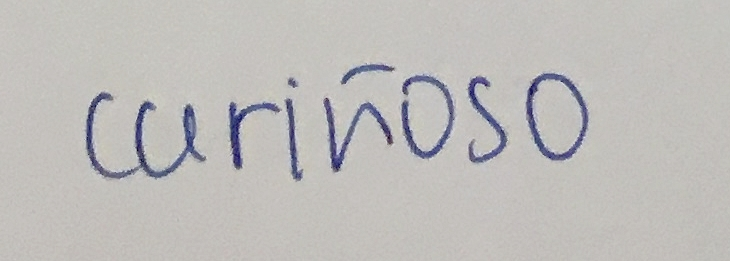 cariñoso